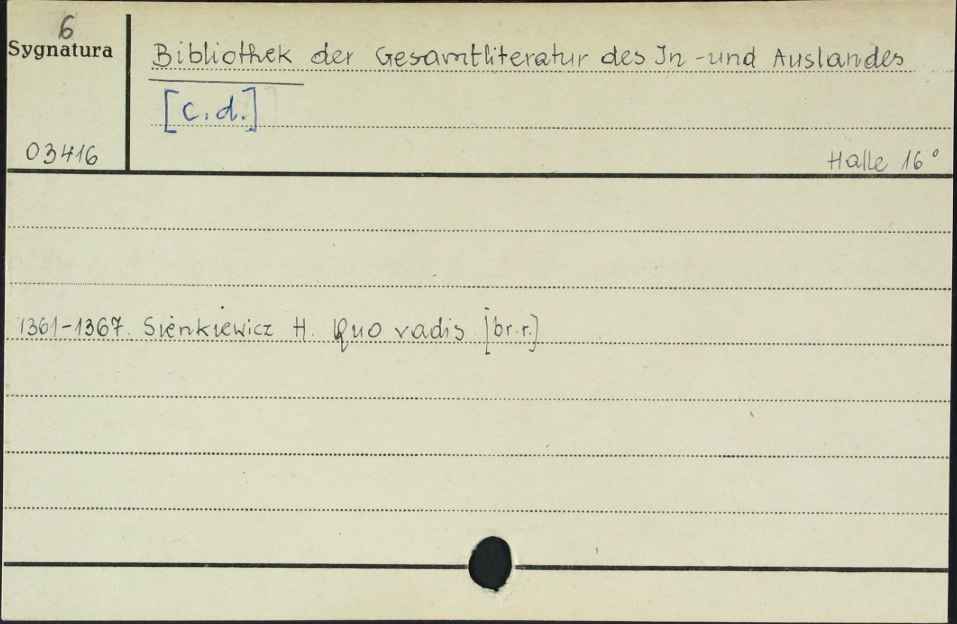 6
Sygnatura
Bibliothek der Gesamtliteratur des In-und Auslandes
[c.d.]
03416
Halle 16°
1361-1367. Sienkiewicz H. Quo vadis [br.r.]